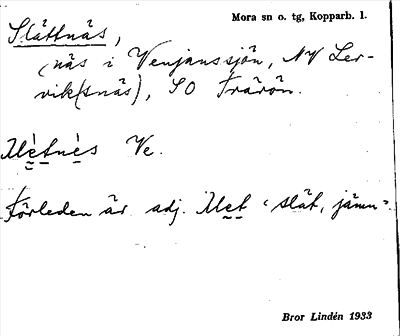 Mora sn o. tg, Kopparb. l.
Slättnäs,
(näs i Venjanssjön, NV Ler-
vik(snäs), SO Frärön.
Slètnès Ve.
Förleden är adj. slet 'slät, jämn'.
Bror Lindén 1933